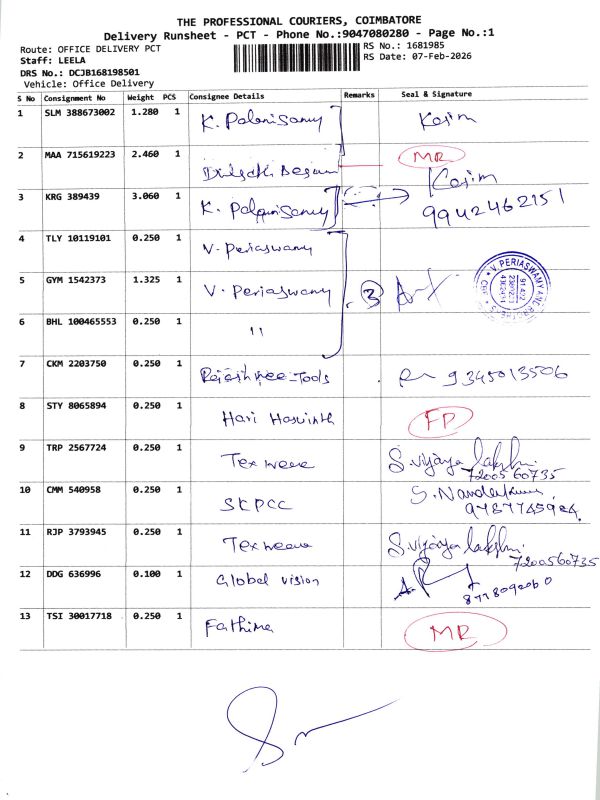 THE PROFESSIONAL COURIERS, COIMBATORE
Delivery Runsheet - PCT - Phone No.:9047080280 - Page No.:1
Route: OFFICE DELIVERY PCT
RS No.: 1681985
Staff: LEELA
RS Date: 07-Feb-2026
DRS No.: DCJB168198501
Vehicle: Office Delivery
S No Consignment No Weight PCS Consignee Details Remarks Seal & Signature
1 SLM 388673002 1.280 1 K. Palanisamy Kasim
2 MAA 715619223 2.460 1 Begum MR
3 KRG 389439 3.060 1 K. Palanisamy Kasim
9942462151
4 TLY 10119101 0.250 1 V. Periaswamy
5 GYM 1542373 1.325 1 V. Periaswamy 3
6 BHL 100465553 0.250 1 "
7 CKM 2203750 0.250 1 Rajashree Tools 9345013506
8 STY 8065894 0.250 1 Hari FP
9 TRP 2567724 0.250 1 Texweave S. Vijaya lakshmi
7200560735
10 CMM 540958 0.250 1 SKPCC S. Nandakumar
11 RJP 3793945 0.250 1 Texweave S. Vijaya lakshmi
7200560735
12 DDG 636996 0.100 1 Global vision
13 TSI 30017718 0.250 1 Fathima MR